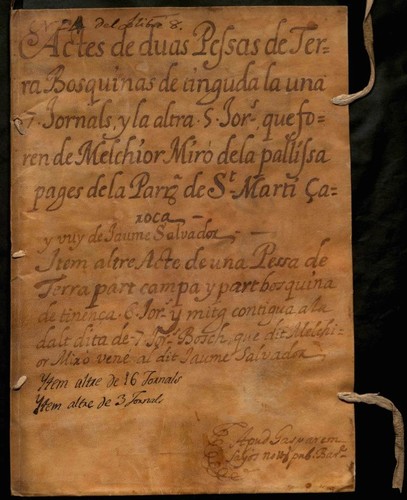 del llibre 8.
Actes de duas Pessas de Ter=
ra Bosquinas de tinguda la una
7. Jornals, y la altra 5. Jor.ˢ que fo=
ren de Melchior Miró de la pallissa
pages de la Parr.ª de S.ᵗ Martí Ça=
roca
y vuy de Jaume Salvador
Item altre Acte de una Pessa de
Terra part campa y part bosquina
de tinença 6 Jor.ˢ y mitg contigua a la
dalt dita de 7. Jor.ˢ Bosch, que dit Melchi=
or Miró vené al dit Jaume Salvador
Ytem altre de 16 Jornals
Ytem altre de 3 Jornals
Gasparem
Sayos not. pub. Bar.ᵉ